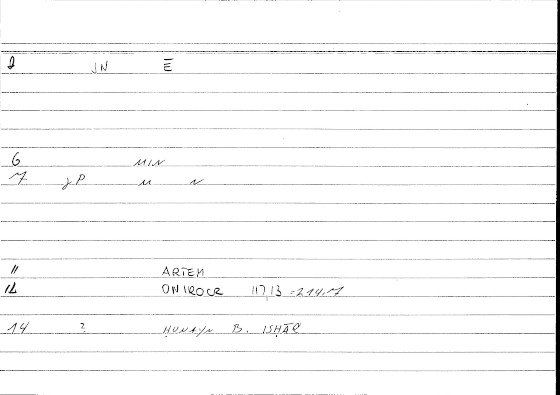 2 JN Ē
6 MIN
7 gP M N
11 ARTEM
12 ONIROCR 117,13 = 214,17
14 ? ḤUNAYN B. ISḤĀQ